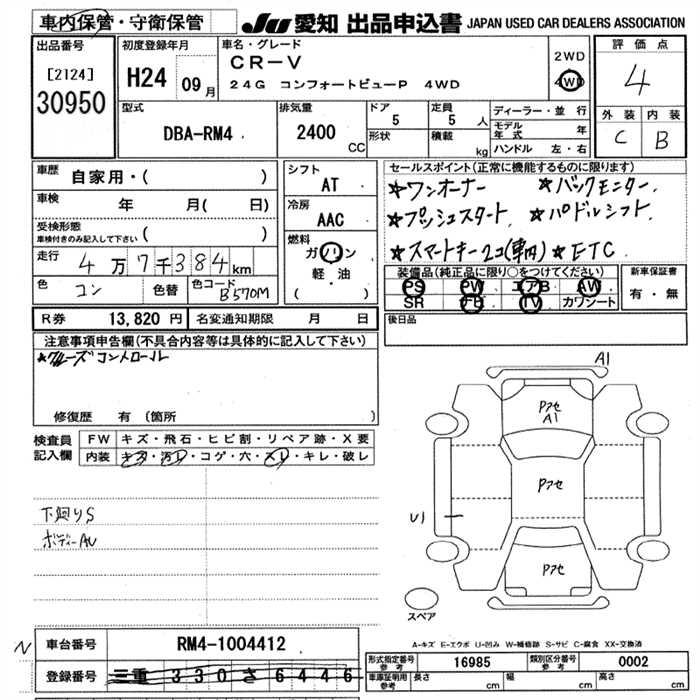 車内保管・守衛保管
JU 愛知 出品申込書 JAPAN USED CAR DEALERS ASSOCIATION
出品番号
[2124]
30950
初度登録年月
H24 09月
車名・グレード
CR-V
24G コンフォートビューP 4WD
2WD
4WD
評価点
4
外装 内装
C B
型式
DBA-RM4
排気量
2400 CC
ドア
5
形状
定員
5 人
積載 kg
ディーラー・並行
モデル年式 年
ハンドル 左・右
車歴
自家用・( )
車検
年 月( 日)
受検形態
車検付きのみ記入して下さい ( )
走行
4万7千384km
色
コン
色替
色コード
B570M
シフト
AT
冷房
AAC
燃料
ガソリン
軽・油
( )
セールスポイント(正常に機能するものに限ります)
★ワンオーナー ★バックモニター.
★プッシュスタート ★パドルシフト
★スマートキー2コ(車内) ★ETC
装備品(純正品に限り○をつけてください)
PS PW エアB AW
SR ナビ TV カワシート
新車保証書
有・無
後日品
R券 13,820円 名変通知期限 月 日
注意事項申告欄(不具合内容等は具体的に記入して下さい)
★クルーズコントロール
修復歴 有(箇所 )
検査員記入欄
FW キズ・飛石・ヒビ割・リペア跡・X要
内装 キズ・汚れ・コゲ・穴・スレ・キレ・破レ
下廻りS
ボディーAU
A1
Pアセ
A1
Pアセ
U1
Pアセ
スペア
A-キズ E-エクボ U-凹み W-補修跡 S-サビ C-腐食 XX-交換済
N
車台番号 RM4-1004412
登録番号 三重 330 さ 6446
形式指定番号
参考
16985
類別区分番号
参考
0002
車庫証明用
参考
長さ cm 幅 cm 高さ cm